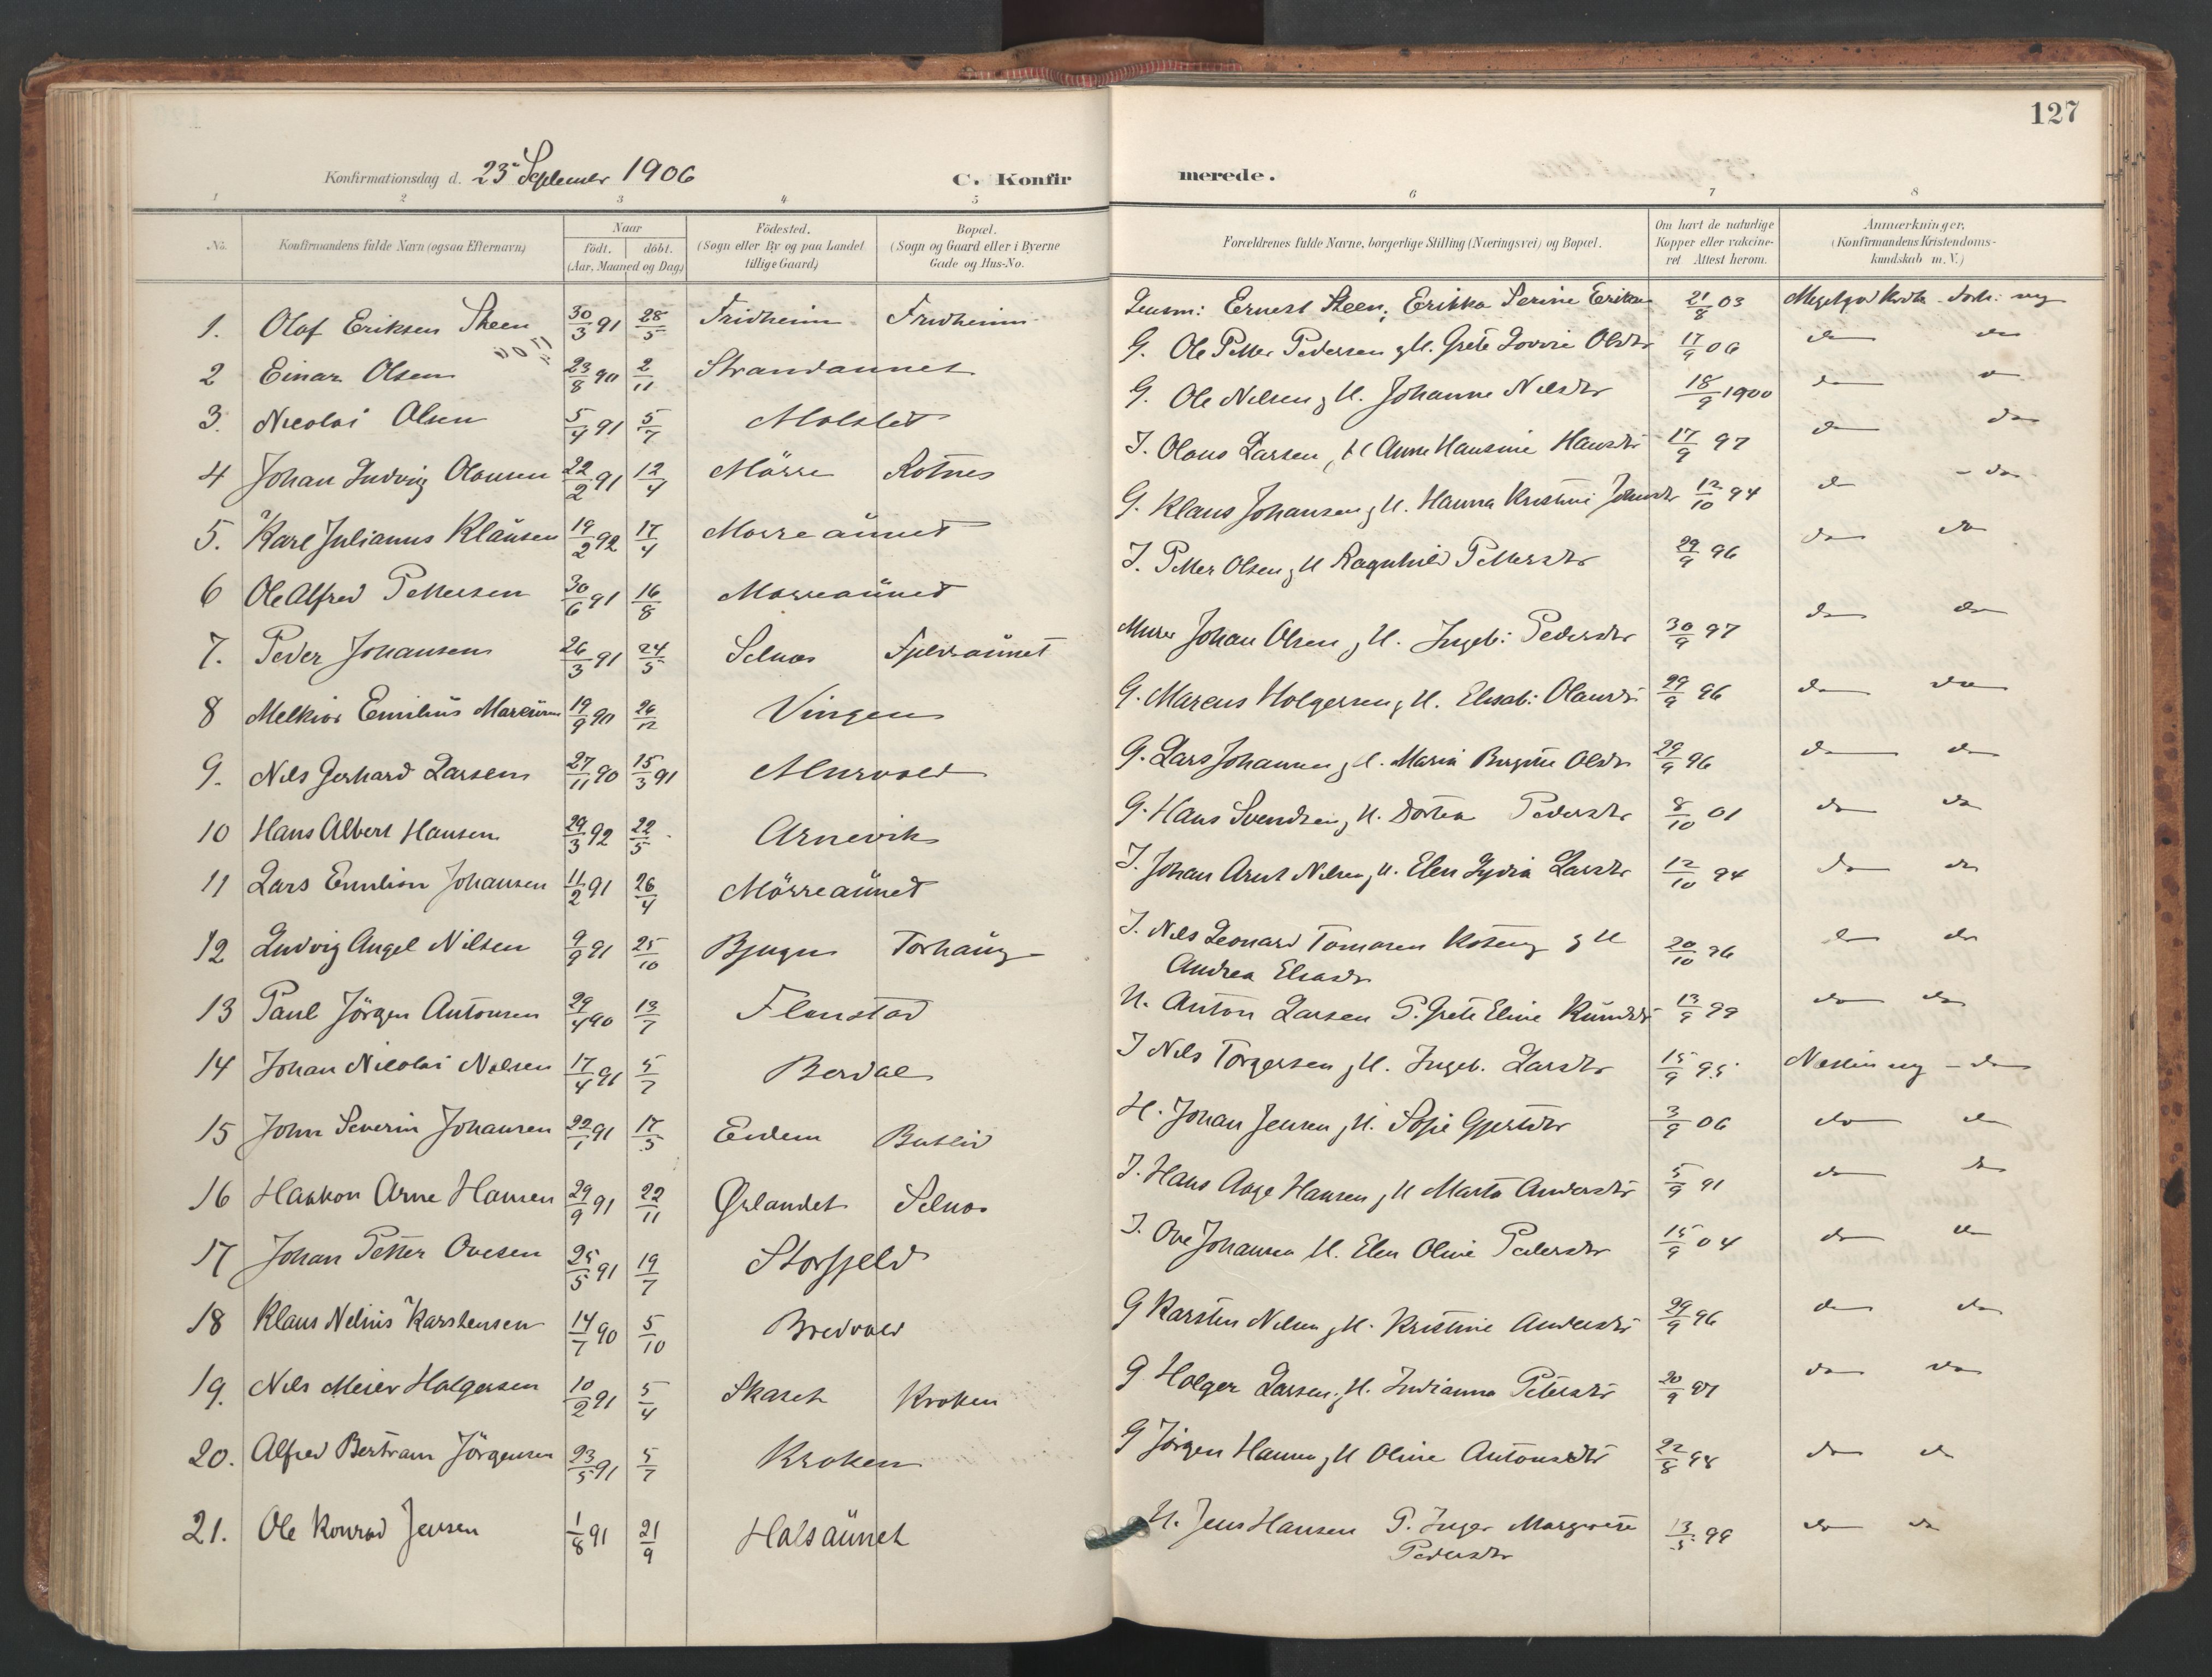 127
Konfirmationsdag d. 23 September 1906
C. Konfir
merede.
1 2 3 4 5 6 7 8
No. Konfirmandens fulde Navn (ogsaa Efternavn) Naar Födested. Bopæl. Forældrenes fulde Navne, borgerlige Stilling (Næringsvei) og Bopæl. Om havt de naturlige Anmærkninger,
födt. döbt. (Sogn eller By og paa Landet (Sogn og Gaard eller i Byerne Kopper eller vakcine- (Konfirmandens Kristendoms-
(Aar, Maaned og Dag) tillige Gaard) Gade og Hus-No. ret Attest herom. kundskab m. V.)
1. Olaf Eriksen Steen 30/3 91 28/5 Fridheim Fridheim Ernest Steen, Erikka Serine 21/8 03
2 Einar Olsen 23/8 90 2/11 Strandaunet G. Ole Petter Pedersen g H. Grete Lovise Olsdtr 17/9 06 do do
3. Nicolai Olsen 5/4 91 5/7 G. Ole Nilsen g H. Johanne Nilsdtr 18/9 1900 do do
4 Johan Ludvig Olausen 22/2 91 12/4 Mörre Rotnes I. Olaus Larsen, H Anne Hansine Hansdtr 17/9 97 do do
5. Karl Julianus Klausen 19/2 92 17/4 Morreaunet G. Klaus Johansen g H. Hanna Kristine 12/10 94 do do
6 Ole Alfred Pettersen 30/6 91 16/8 Morreaunet I. Petter Olsen g H Ragnhild Pettersdtr 29/9 96 do do
7. Peder Johansen 26/3 91 24/5 Selnes Murer Johan Olsen g H. Ingeb: Pedersdtr 30/9 97 do do
8 Melkior Emilius Marcusen 19/9 90 26/12 Vingen G. Marcus Holgersen g H. Elisab: Olausdtr 29/9 96 do do
9. Nils Gerhard Larsen 27/11 90 15/3 91 Murvold G. Lars Johansen g H. Maria Birgitte Olsdtr 29/9 96 do do
10 Hans Albert Hansen 29/3 92 22/5 Arnevik G. Hans Svendsen g H. Dortea Pedersdtr 8/10 01 do do
11 Lars Emilian Johansen 11/2 91 26/4 Mörreaunet I. Johan Arnt Nilsen g H. Elen Lydia Larsdtr 12/10 94 do do
12 Ludvig Angel Nilsen 9/9 91 25/10 Bjugn Torhaug I. Nils Leonard Tomasen g H 20/10 96 do do
Andrea Eliasdtr
13 Paul Jörgen Antonsen 29/4 90 13/7 Flenstad U. Anton Larsen P. Grete Eline 13/9 99 do do
14 Johan Nicolai Nilsen 17/4 91 5/7 Berdal I Nils Torgersen g H. Ingeb. Larsdtr 15/9 95 do
15 John Severin Johansen 22/1 91 17/5 Butlid H. Johan Jensen g H. Sofie Gjertsdtr 3/9 06 do do
16 Haakon Arne Hansen 29/9 91 22/11 Ørlandet Selnes I. Hans Aage Hansen g H Marta Andersdtr 5/9 91 do do
17 Johan Petter Ovesen 25/5 91 19/7 Storfjeld I. Ove Johansen H. Elen Oline Pedersdtr 15/9 04 do do
18 Klaus Nelius Karstensen 14/7 90 5/10 Bredvold G Karsten Nilsen g H. Kristine Andersdtr 29/9 96 do do
19. Nils Meier Holgersen 10/2 91 5/4 Skaret Kroken G Holger Larsen g H. Indianna Petersdtr 20/9 97 do do
20. Alfred Bertram Jörgensen 23/5 91 5/7 Kroken G Jörgen Hansen g H Oline Antonsdtr 22/8 98 do do
21. Ole Konrad Jensen 1/8 91 21/9 Halsaunet U. Jens Hansen P. Inger Margrete 13/5 99 do do
Pedersdtr